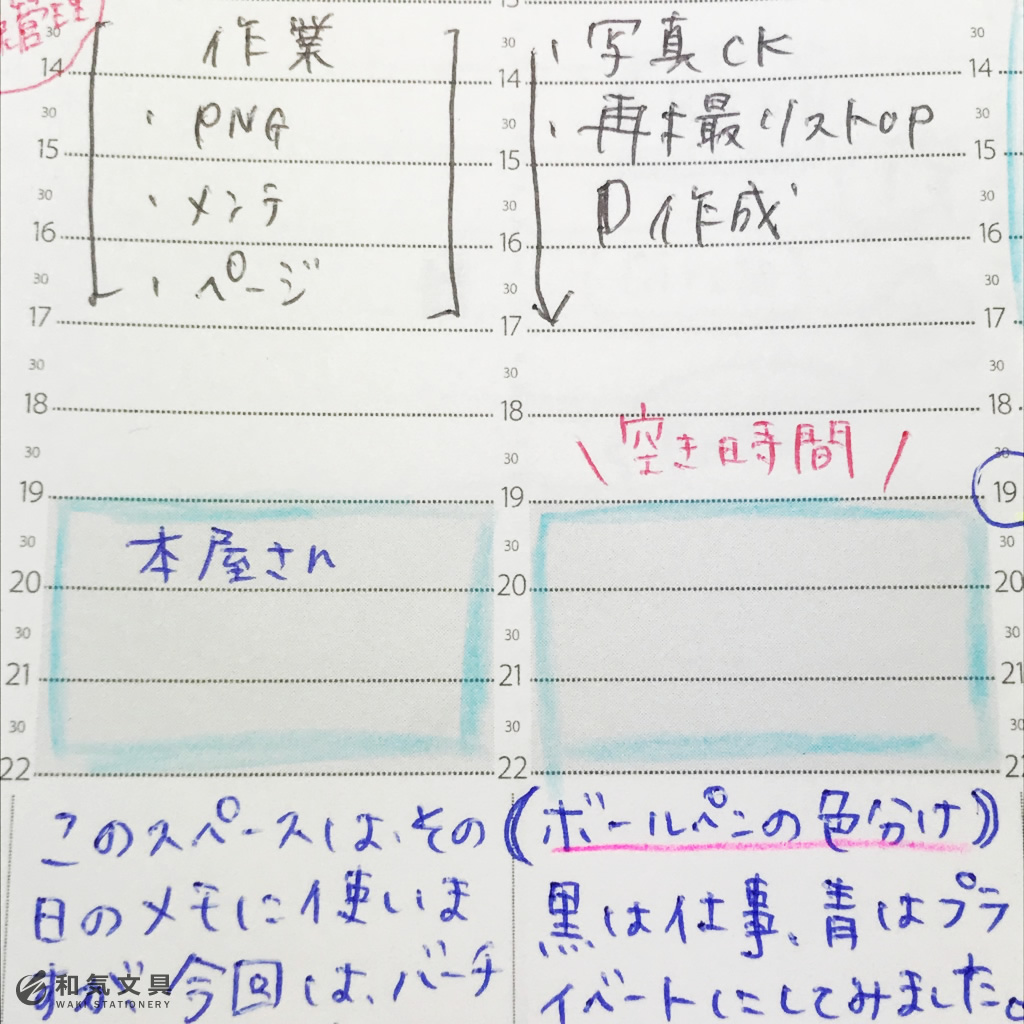 管理
30
14
30
15
30
16
30
17
30
18
30
19
30
20
30
21
30
22
作業
・PNG
・メンテ
・ページ
本屋さん
このスペースは、その
日のメモに使いま
すが、今回は、バーチ
30
14
30
15
30
16
30
17
30
18
30
19
30
20
30
21
30
22
・写真CK
・再才最リストOP
D作成
\空き時間/
(ボールペンの色分け)
黒は仕事、青はプラ
イベートにしてみました。
30
14
30
15
30
16
30
17
30
18
30
19
30
20
30
21
30
22
和気文具
WAKI STATIONERY